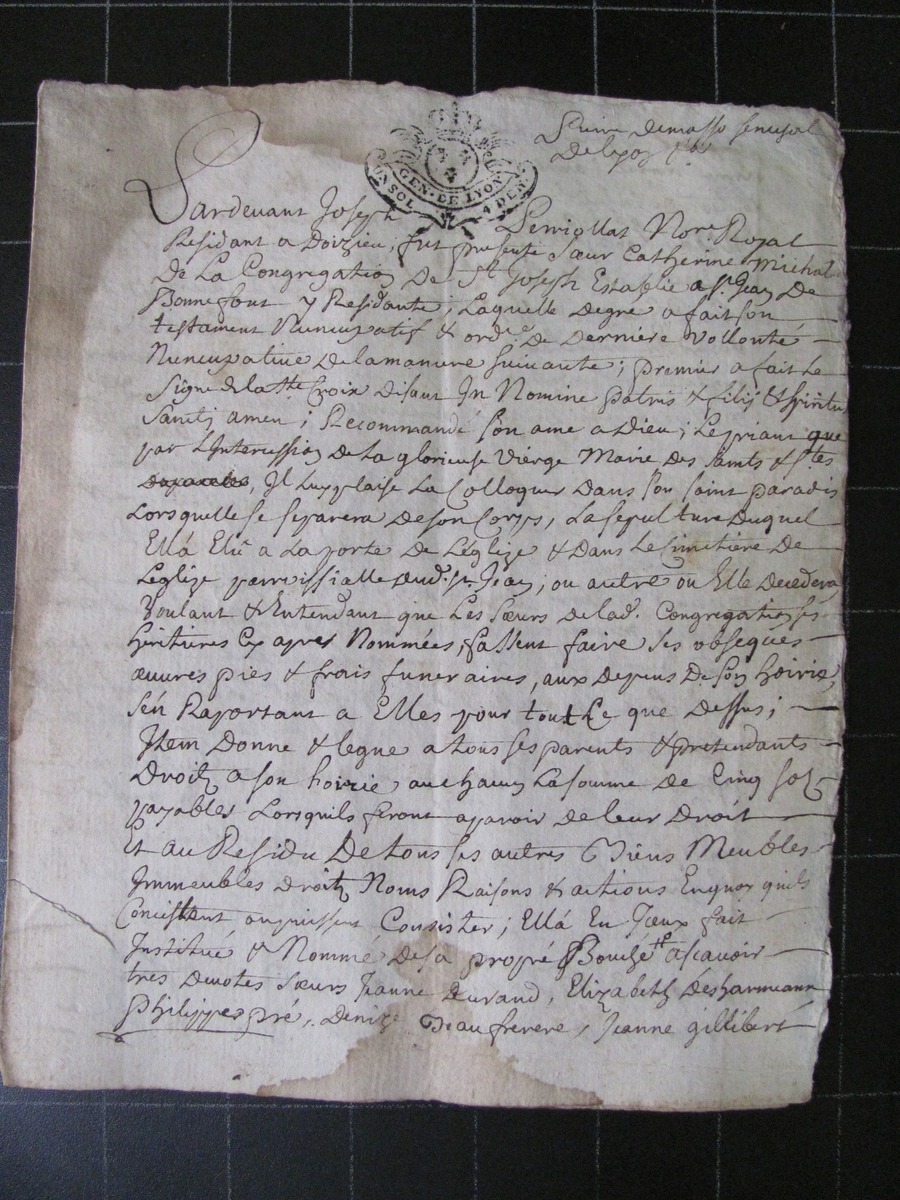 GEN. DE LYON
UN SOL 4 DEN.
Pardevant Joseph Perriollat Nore. Royal
Residant a Doizieu, fut presente Sœur Catherine Michal
De La Congregation De St Joseph Establie a st. Jean De
Bonnefont y Residante; Laquelle degré a fait son
testament Nuncupatif & ordre. De Derniere Vollonté
Nuncupative de la maniere suivante; premier a fait Le
signe de la ste. Croix disant In Nomine patris & filij & spiritus
sancti amen; Recommandé son ame a Dieu; Le priant que
par L'Intercession De La glorieuse Vierge Marie des saints & stes
Il Luy plaise La Colloquer Dans son saint paradis
Lorsquelle se separera de son Corps, La sepulture Duquel
Ell'a Elû a La porte de L'églize & dans Le Cimetiere de
L'églize parroissialle dud. st. Jean; ou autre ou Elle decedera
Voulant & Entendant que Les Sœurs de lad. Congregation ses
heritieres Cy apres Nommées, fassent faire ses obseques
œuvres pies & frais funeraires, aux depens De son hoirie,
s'en Raportant a Elles pour tout Ce que Dessus;
Item Donne & legue a tous ses parents & pretendants
Droitz a son hoirie a un chacun La somme de Cinq solz
payables Lorsquils feront aparoir de leur Droit
Et au Residu De tous ses autres Biens Meubles
Immeubles droitz Noms Raisons & actions En quoy quils
Consistent ou puissent Consister; Ell'a En Iceux fait
Institué & Nommé de sa propre Bouche a scavoir
tres devotes sœurs Jeanne Durand, Elizabeth Desharmeaux
Philippes pré, Denize Beaufrerere, Jeanne gillibert